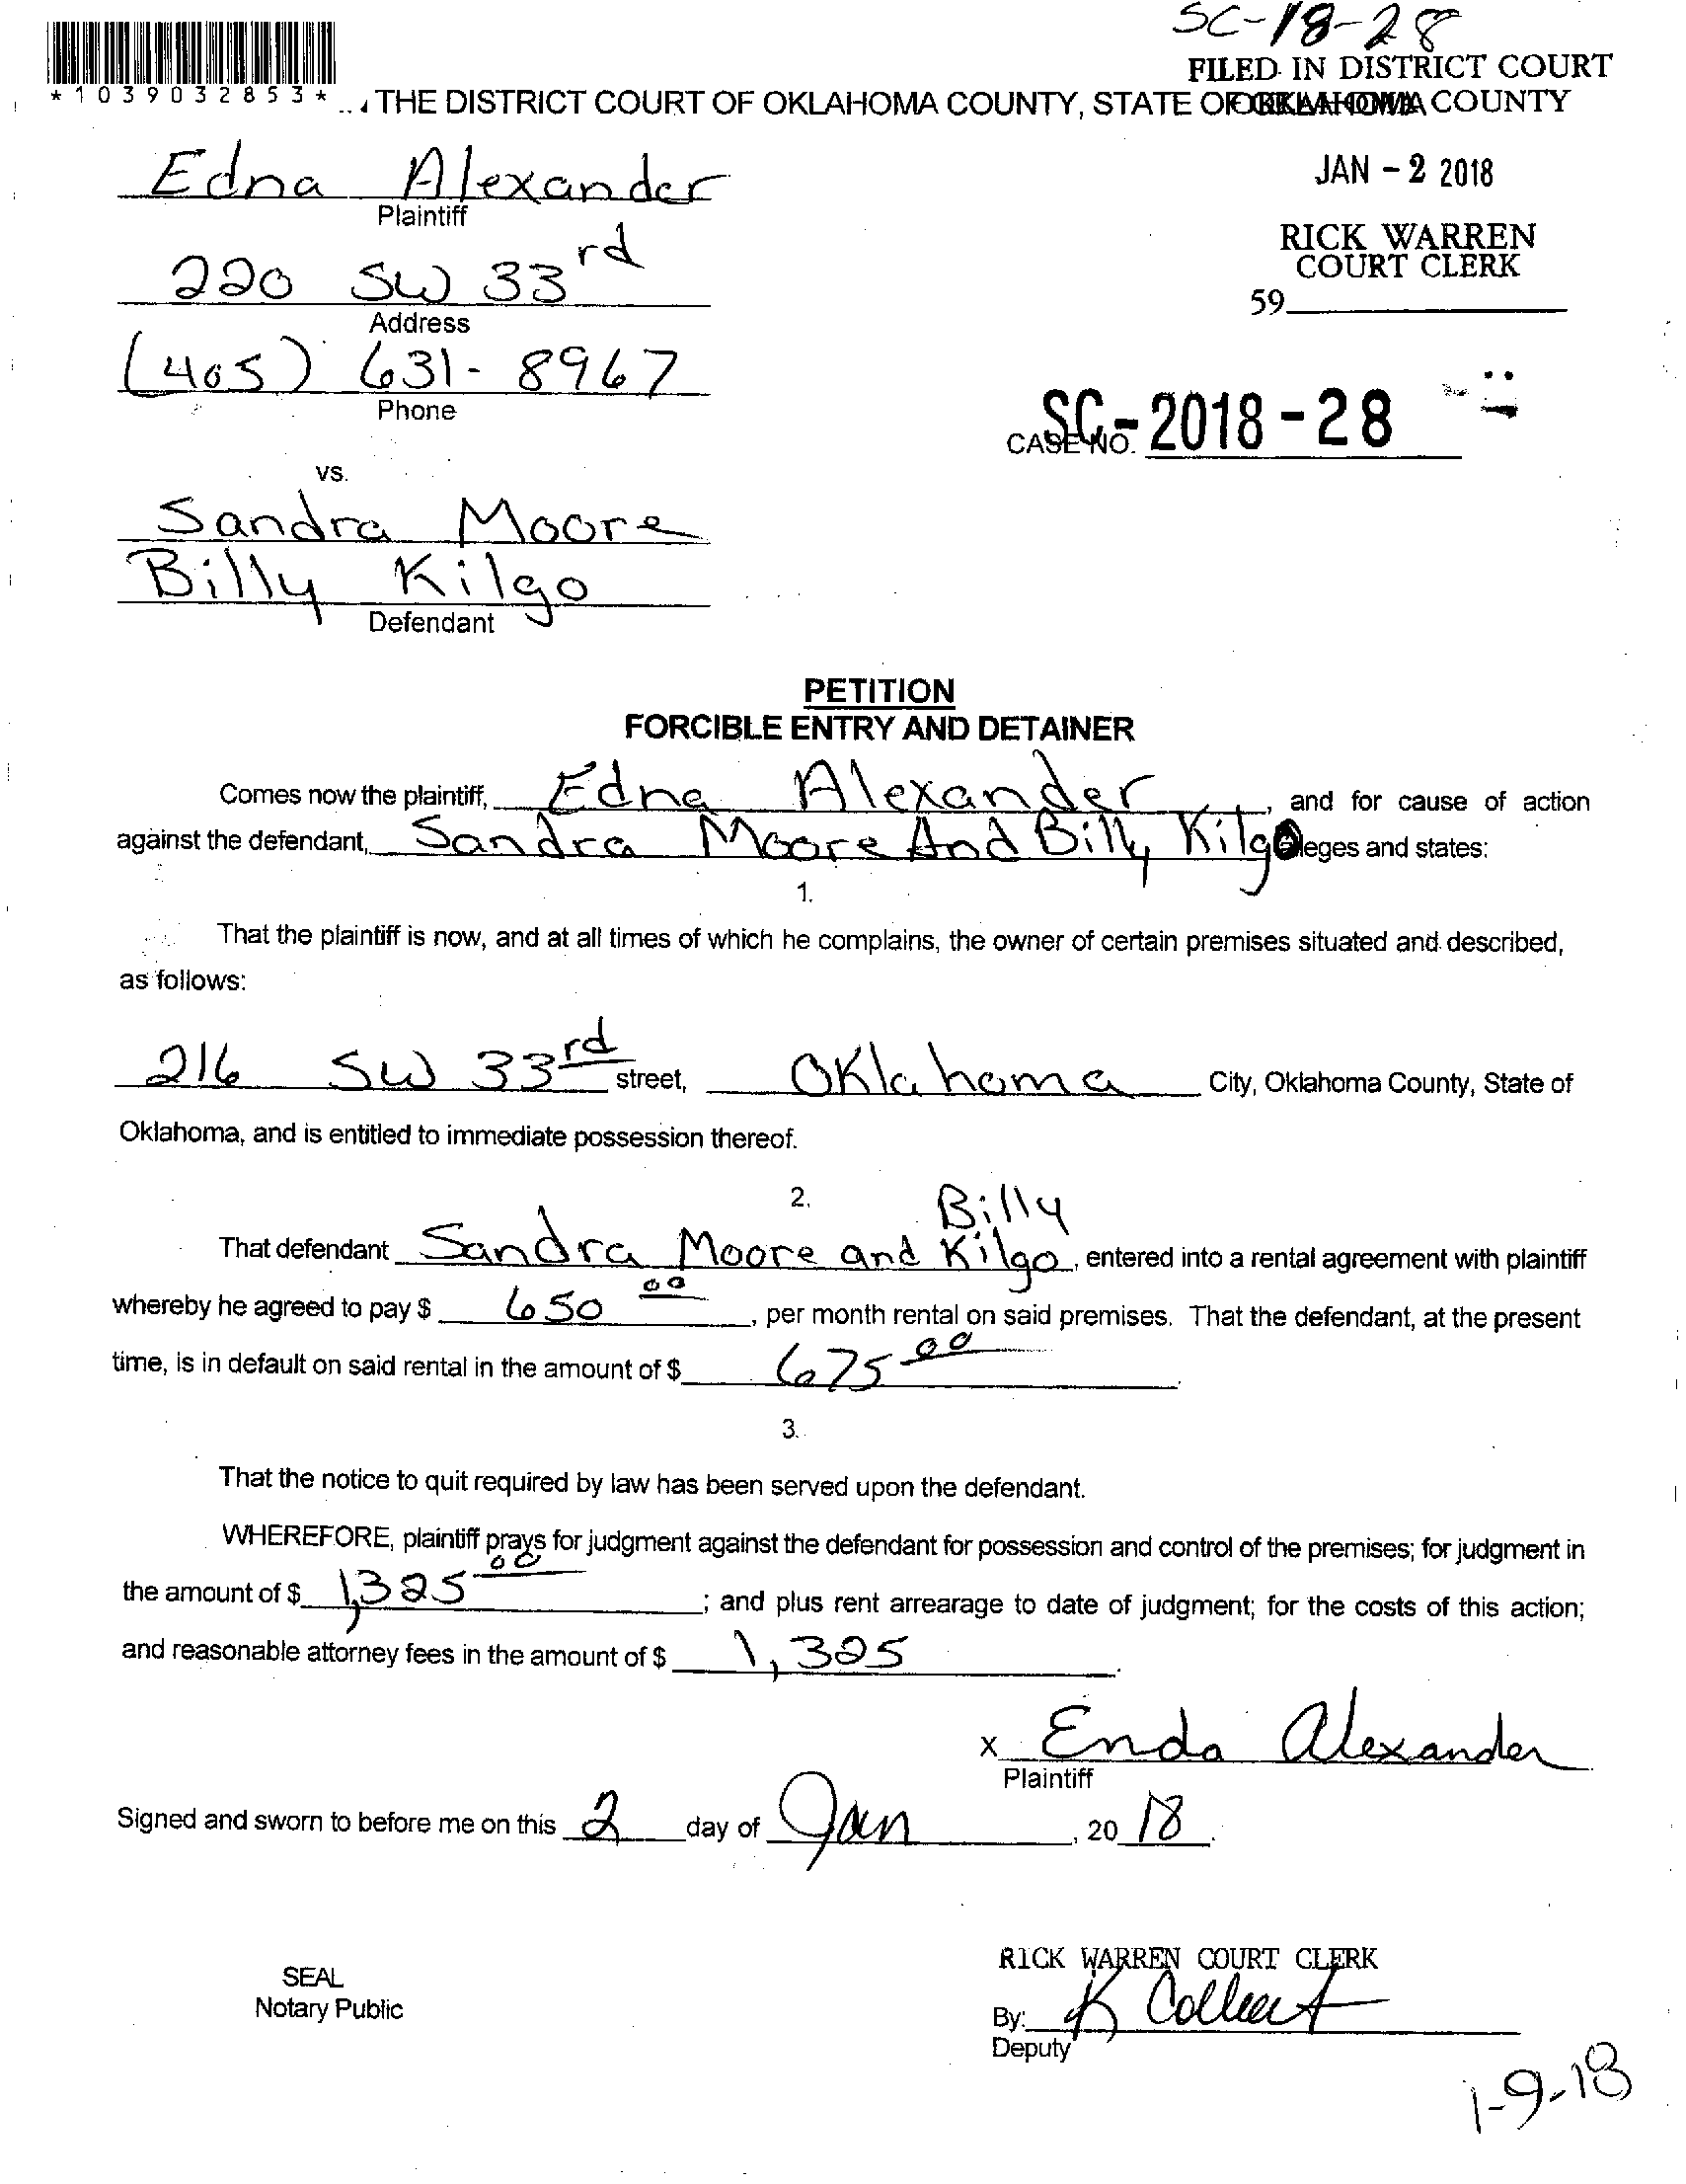 SC-18-28
FILED IN DISTRICT COURT
*1039032853* THE DISTRICT COURT OF OKLAHOMA COUNTY, STATE OF OKLAHOMA COUNTY
Edna Alexander
Plaintiff
JAN - 2 2018
RICK WARREN
COURT CLERK
220 SW 33rd
59
Address
(405) 631-8967
Phone
CASE NO. SC-2018-28
vs.
Sandra Moore
Billy Kilgo
Defendant
PETITION
FORCIBLE ENTRY AND DETAINER
Comes now the plaintiff, Edna Alexander, and for cause of action
against the defendant, Sandra Moore And Billy Kilgo alleges and states:
1.
That the plaintiff is now, and at all times of which he complains, the owner of certain premises situated and described,
as follows:
216 SW 33rd street, Oklahoma City, Oklahoma County, State of
Oklahoma, and is entitled to immediate possession thereof.
2.
Billy
That defendant Sandra Moore and Kilgo, entered into a rental agreement with plaintiff
whereby he agreed to pay $ 650 00, per month rental on said premises. That the defendant, at the present
time, is in default on said rental in the amount of $ 675 00.
3.
That the notice to quit required by law has been served upon the defendant.
WHEREFORE, plaintiff prays for judgment against the defendant for possession and control of the premises; for judgment in
the amount of $ 1,325 00; and plus rent arrearage to date of judgment; for the costs of this action;
and reasonable attorney fees in the amount of $ 1,325.
x Enda Alexander
Plaintiff
Signed and sworn to before me on this 2 day of Jan, 20 18.
RICK WARREN COURT CLERK
SEAL
Notary Public
By: K Colbert
Deputy
1-9-18